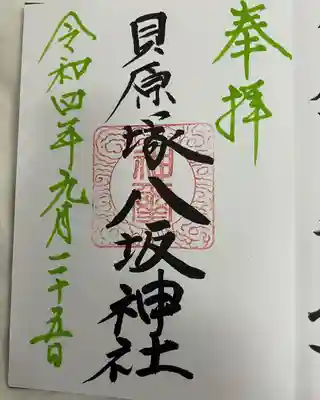 奉拝
貝原塚八坂神社
令和四年九月二十五日